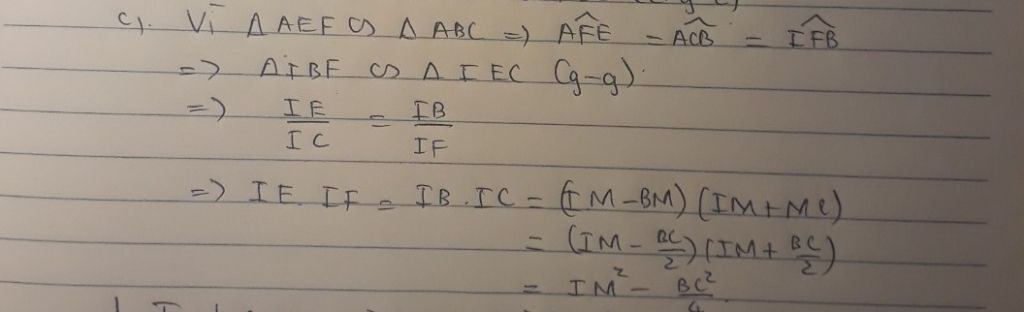 c). Vì ΔAEF ∽ ΔABC => \widehat{AFE} = \widehat{ACB} = \widehat{IFB}
=> ΔIBF ∽ ΔIEC (g-g).
=> \frac{IE}{IC} = \frac{IB}{IF}
=> IE. IF = IB.IC = (IM-BM)(IM+MC)
= (IM - \frac{BC}{2})(IM + \frac{BC}{2})
= IM^2 - \frac{BC^2}{4}.